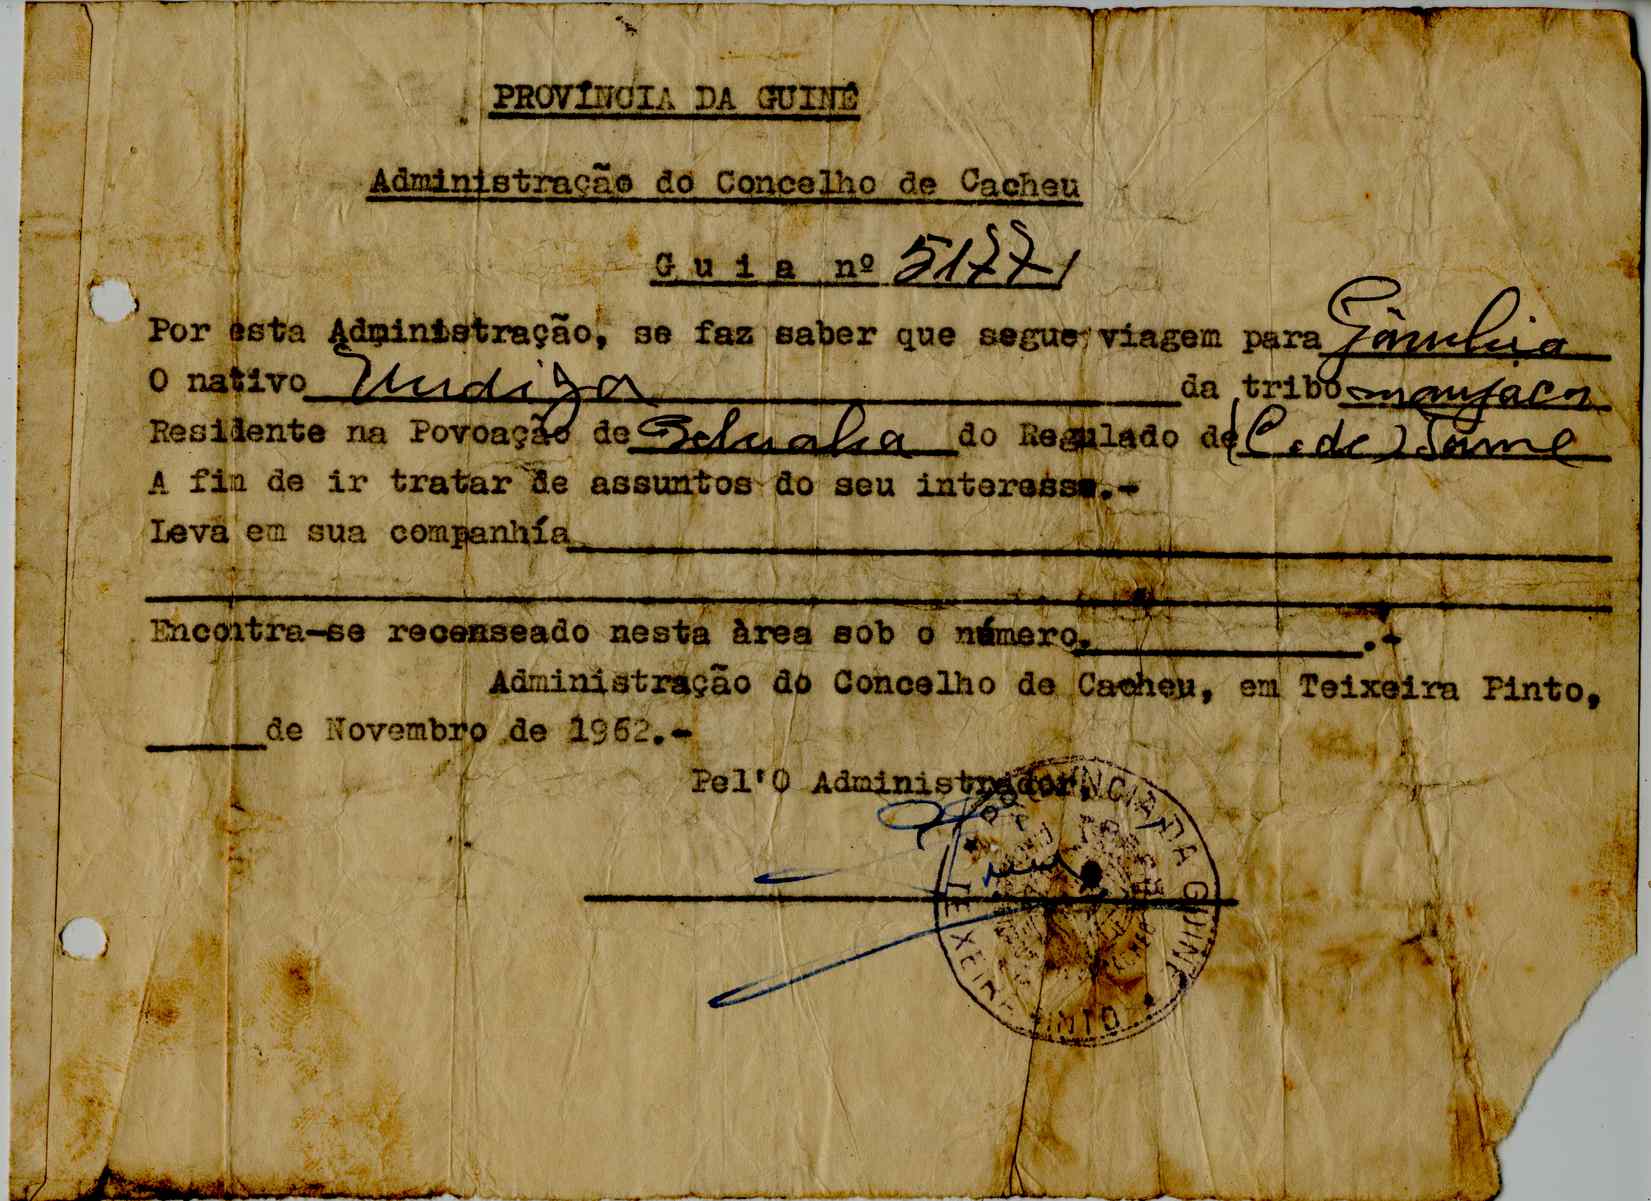 PROVÍNCIA DA GUINÉ
Administração do Concelho de Cacheu
Guia nº 5177
Por esta Administração, se faz saber que segue viagem para Gâmbia
O nativo da tribo manjaca
Residente na Povoação de do Regulado de
A fin de ir tratar de assuntos do seu interesse.-
Leva em sua companhía
Encontra-se recenseado nesta àrea sob o número. .-
Administração do Concelho de Cacheu, em Teixeira Pinto,
de Novembro de 1962.-
Pel'O Administrador,
PROVÍNCIA DA GUINÉ
TEIXEIRA PINTO